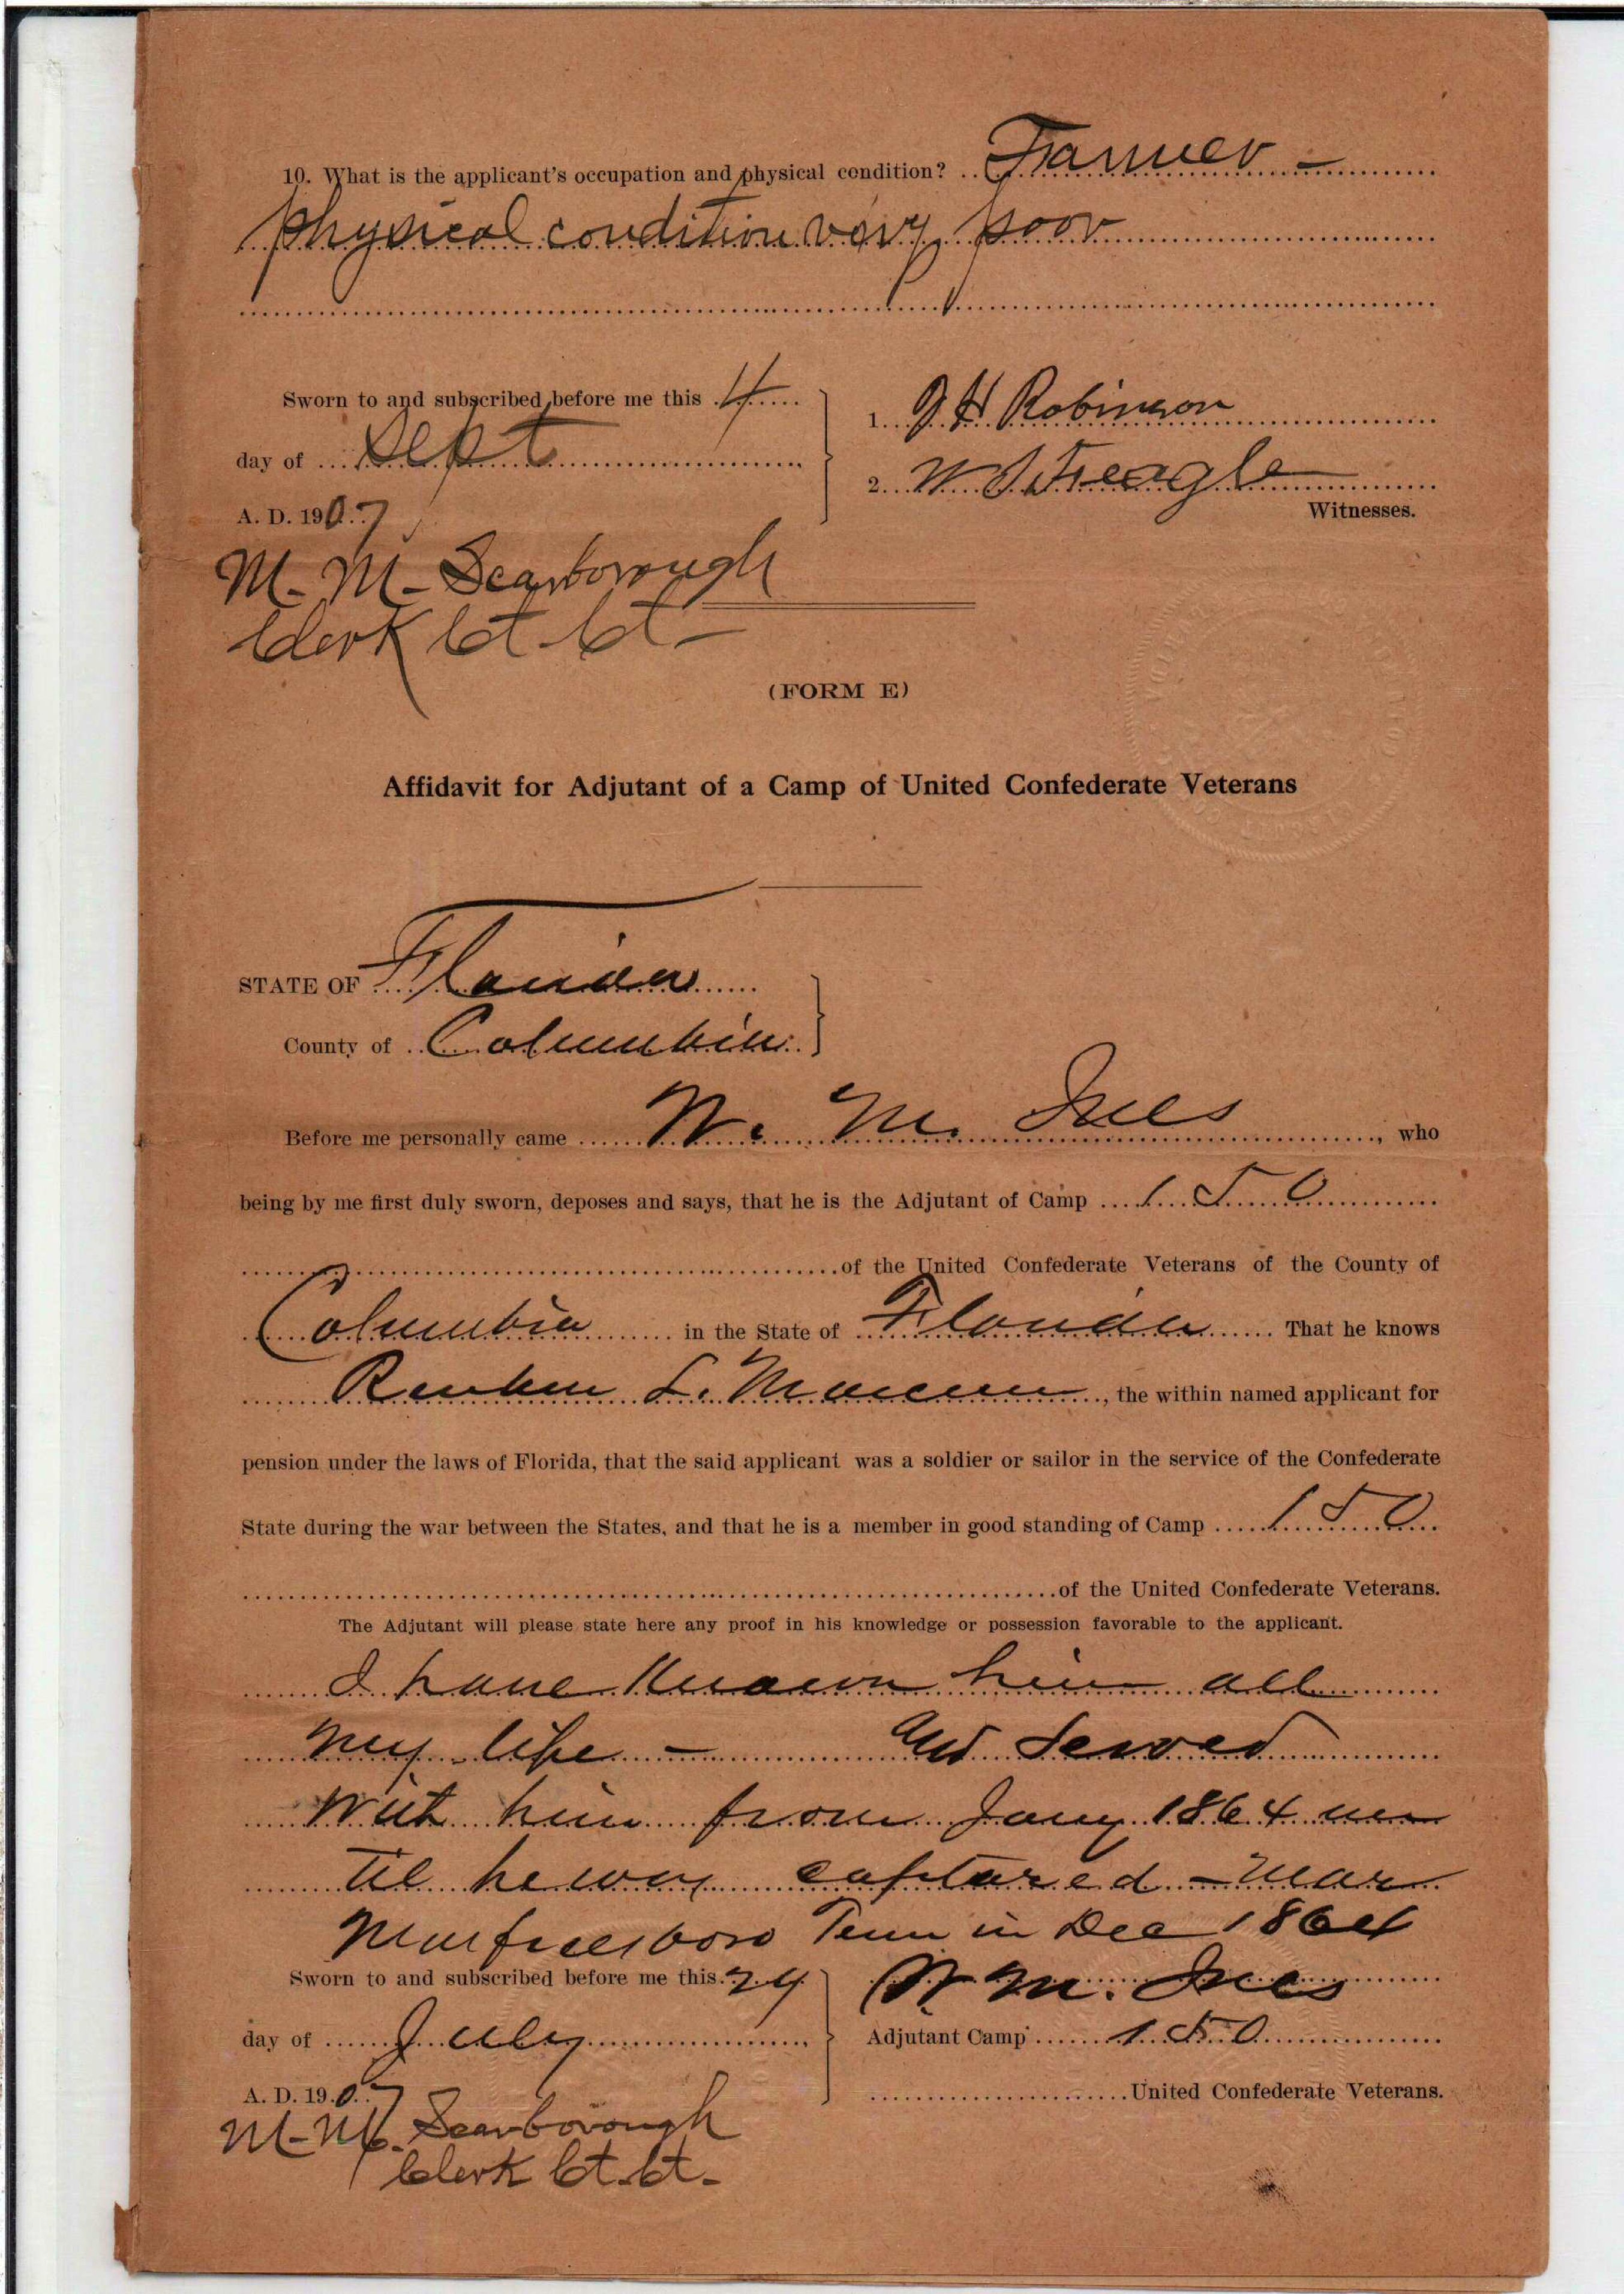 10. What is the applicant's occupation and physical condition? Farmer –
physical condition very poor
Sworn to and subscribed before me this 4
day of Sept
A. D. 1907
1. J H Robinson
2. W S Feagle
Witnesses.
M. M. Scarborough
Clerk Ct. Ct.
(FORM E)
Affidavit for Adjutant of a Camp of United Confederate Veterans
STATE OF Florida
County of Columbia
Before me personally came W. M. Ives, who
being by me first duly sworn, deposes and says, that he is the Adjutant of Camp 150
of the United Confederate Veterans of the County of
Columbia in the State of Florida That he knows
Reuben L. , the within named applicant for
pension under the laws of Florida, that the said applicant was a soldier or sailor in the service of the Confederate
State during the war between the States, and that he is a member in good standing of Camp 150
of the United Confederate Veterans.
The Adjutant will please state here any proof in his knowledge or possession favorable to the applicant.
I have Known him all
my life – and Served
With him from Jany 1864 un
til he was captured – near
Murfreesboro Tenn in Dec 1864
Sworn to and subscribed before me this 24
day of July
A. D. 1907
W. M. Ives
Adjutant Camp 150
United Confederate Veterans.
M. M. Scarborough
Clerk Ct. Ct.